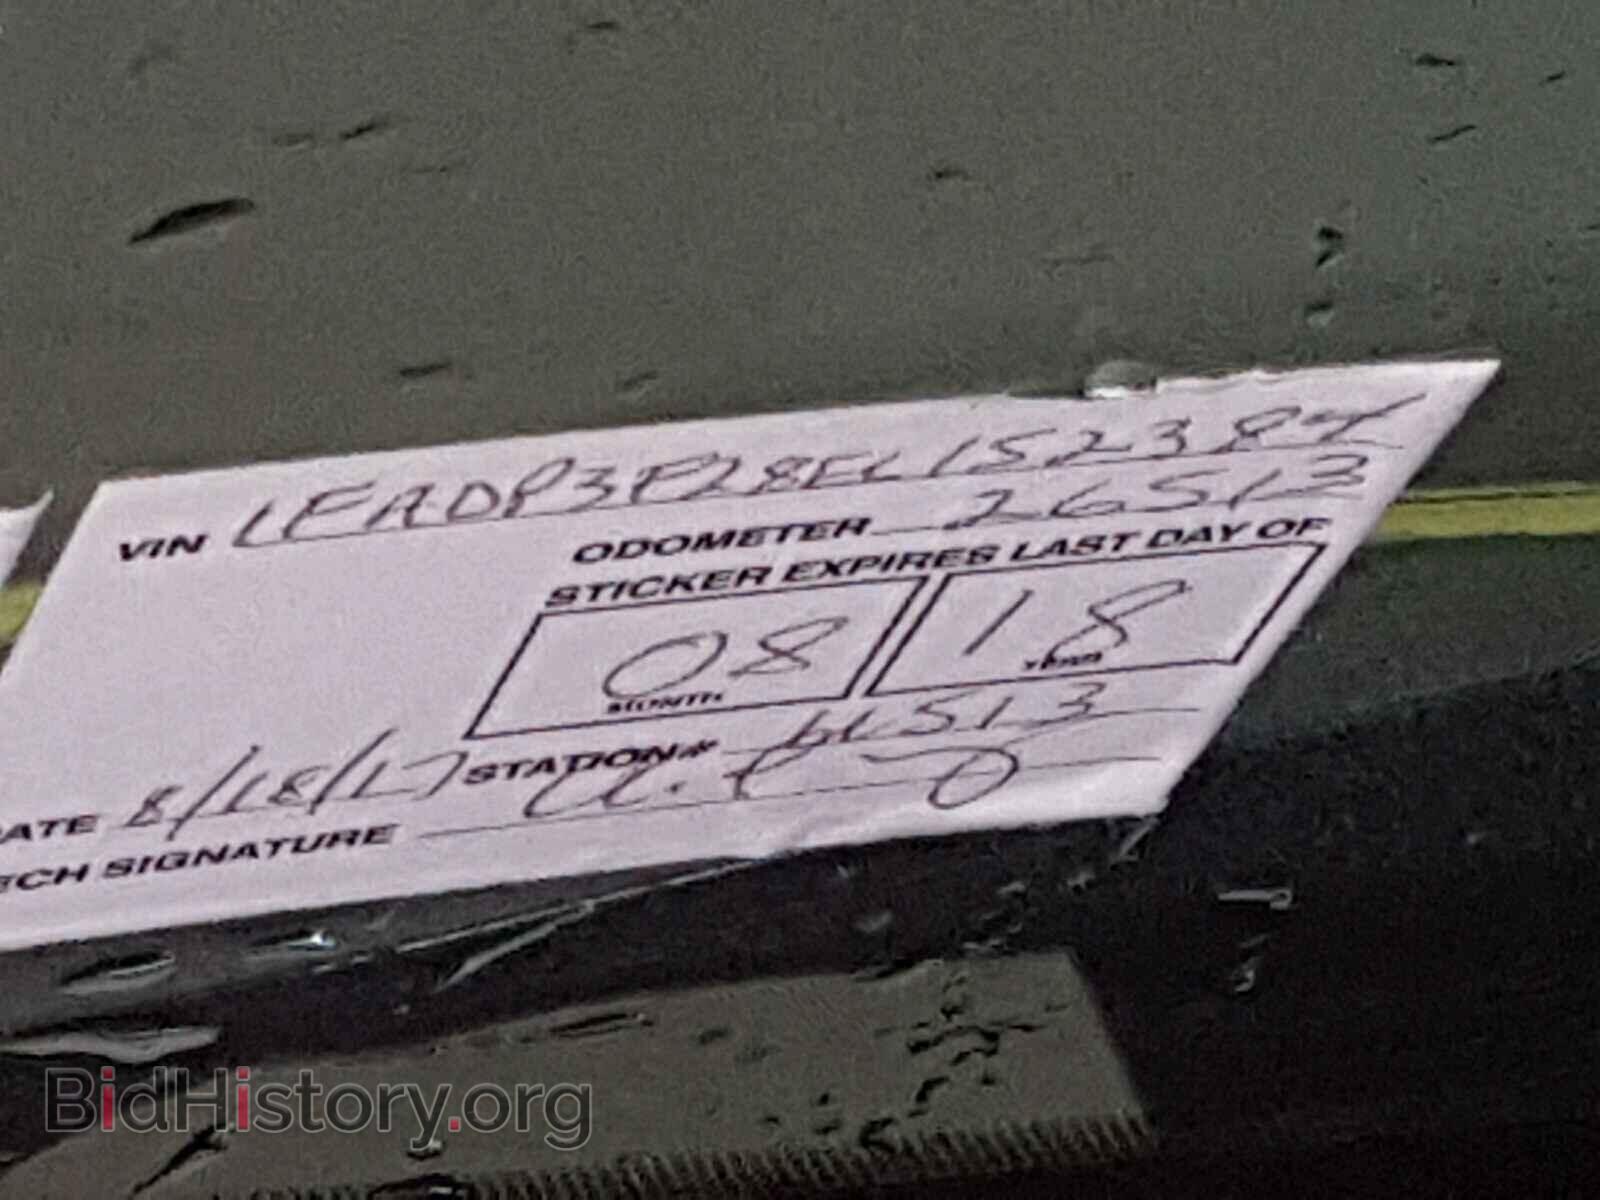 VIN 1FADP3F28EL152384
ODOMETER 26513
STICKER EXPIRES LAST DAY OF
08 18
MONTH YEAR
ATE 8/18/17 STATION#
ECH SIGNATURE
BidHistory.org